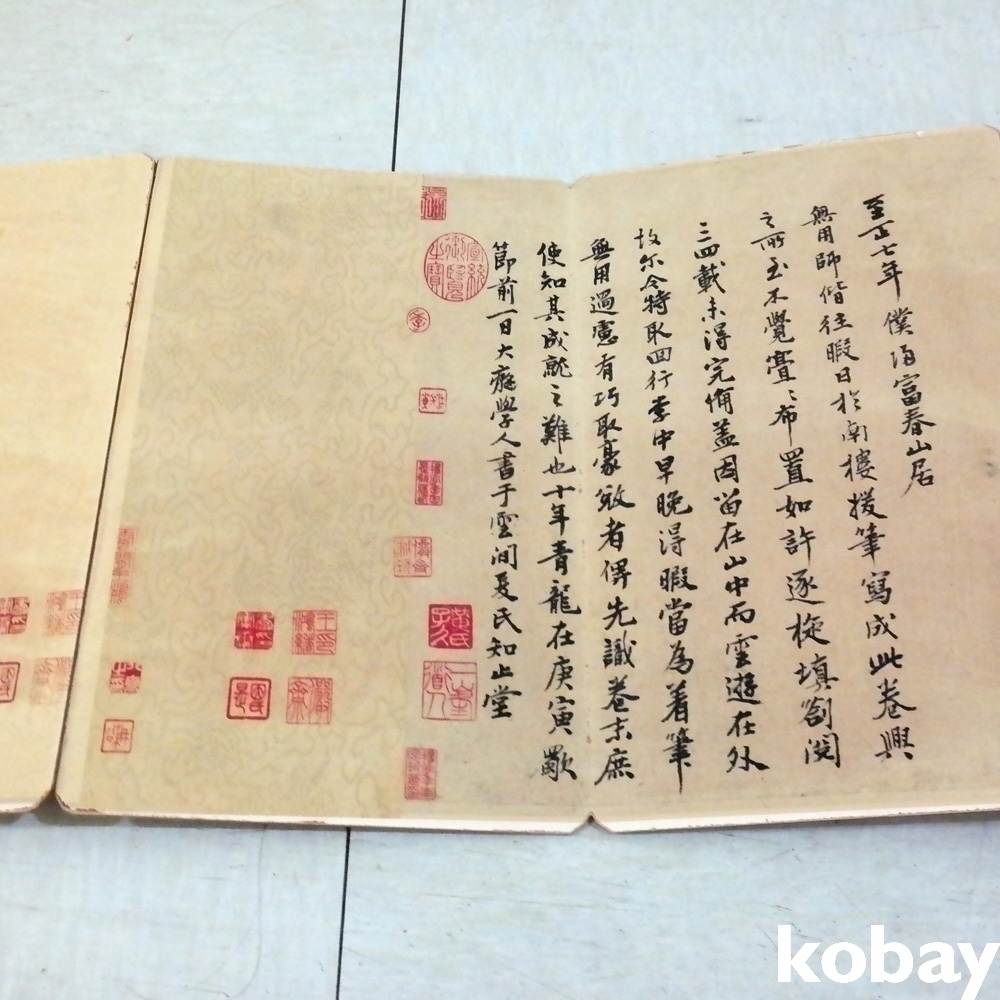 至正七年僕歸富春山居
無用師偕往暇日於南樓援筆寫成此卷興
之所至不覺亹〻布置如許逐旋填劄閱
三四載未得完備盖因留在山中而雲遊在外
故尔今特取回行李中早晚得暇當為着筆
無用過慮有巧取豪敓者俾先識卷末庶
使知其成就之難也十年青龍在庚寅歜
節前一日大癡學人書于雲間夏氏知止堂
宣統御覽之寶
黃氏子久
一峯道人
kobay